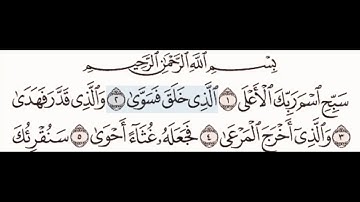 بِسْمِ ٱللَّهِ ٱلرَّحْمَٰنِ ٱلرَّحِيمِ
سَبِّحِ ٱسْمَ رَبِّكَ ٱلْأَعْلَى ١ ٱلَّذِى خَلَقَ فَسَوَّىٰ ٢ وَٱلَّذِى قَدَّرَ فَهَدَىٰ
٣ وَٱلَّذِىٓ أَخْرَجَ ٱلْمَرْعَىٰ ٤ فَجَعَلَهُۥ غُثَآءً أَحْوَىٰ ٥ سَنُقْرِئُكَ